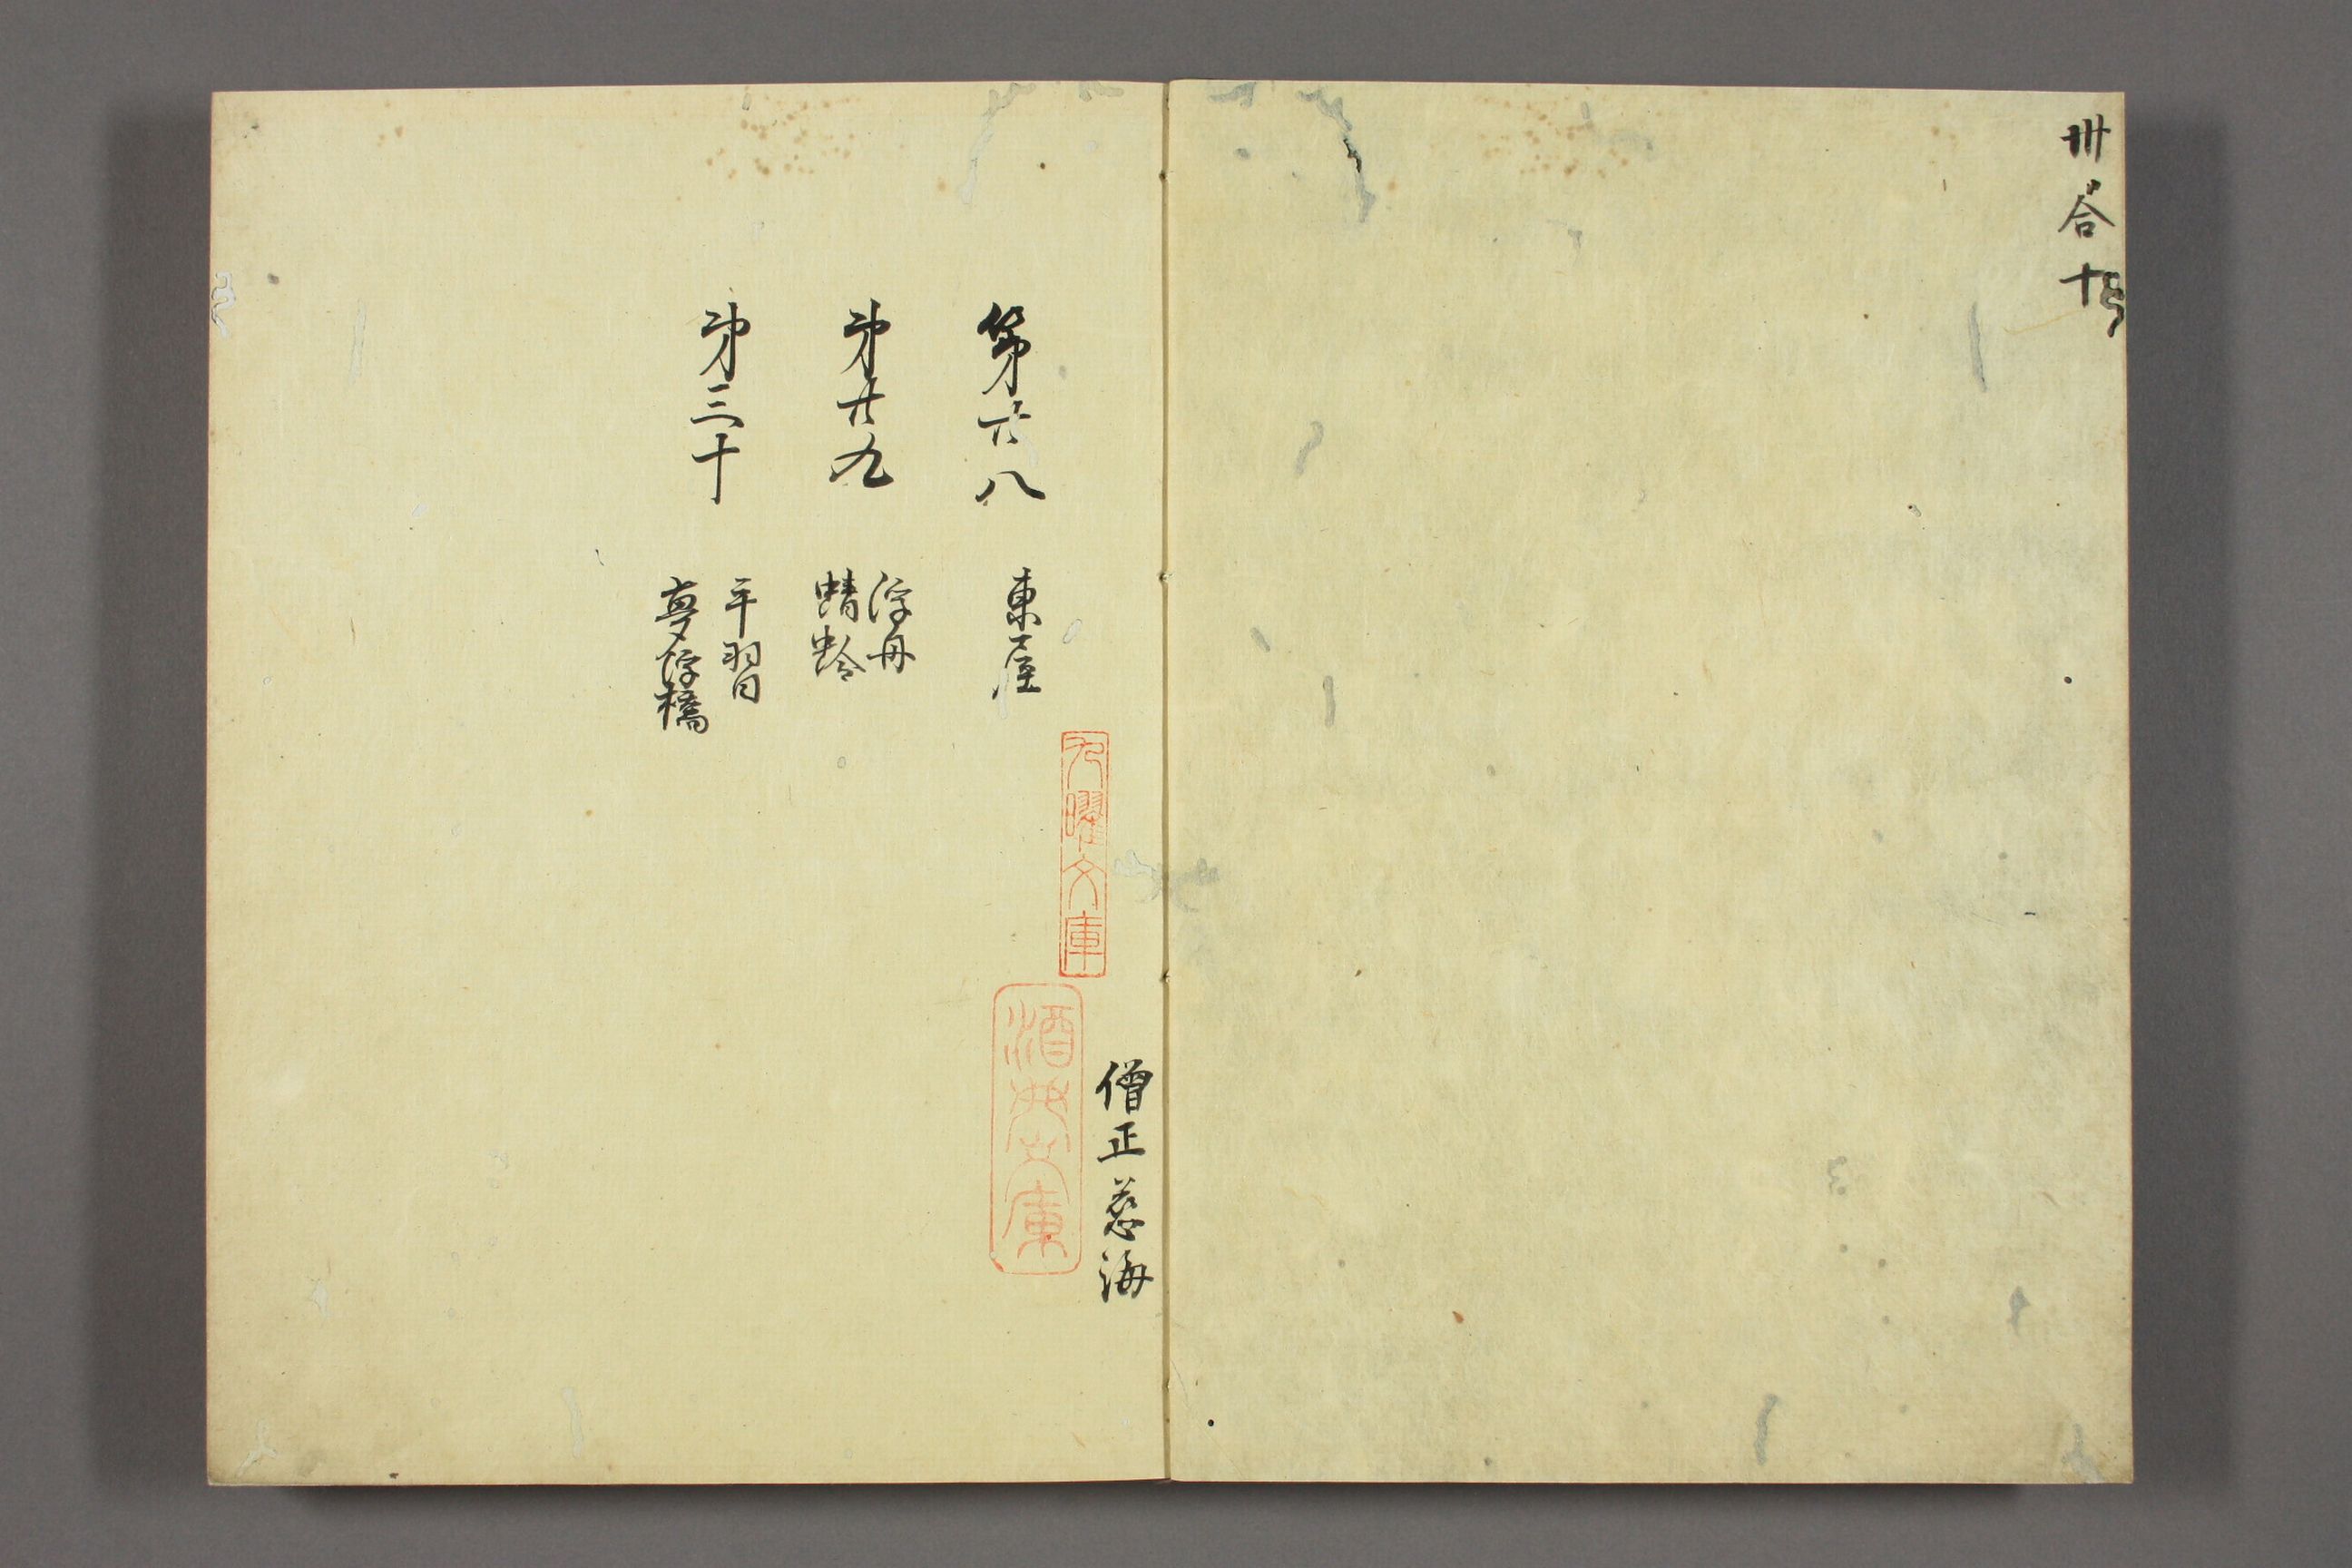 卅合十号
僧正慈海
九曜文庫
第廿八 東屋
第廿九 浮舟
蜻蛉
第三十 手習
夢浮橋